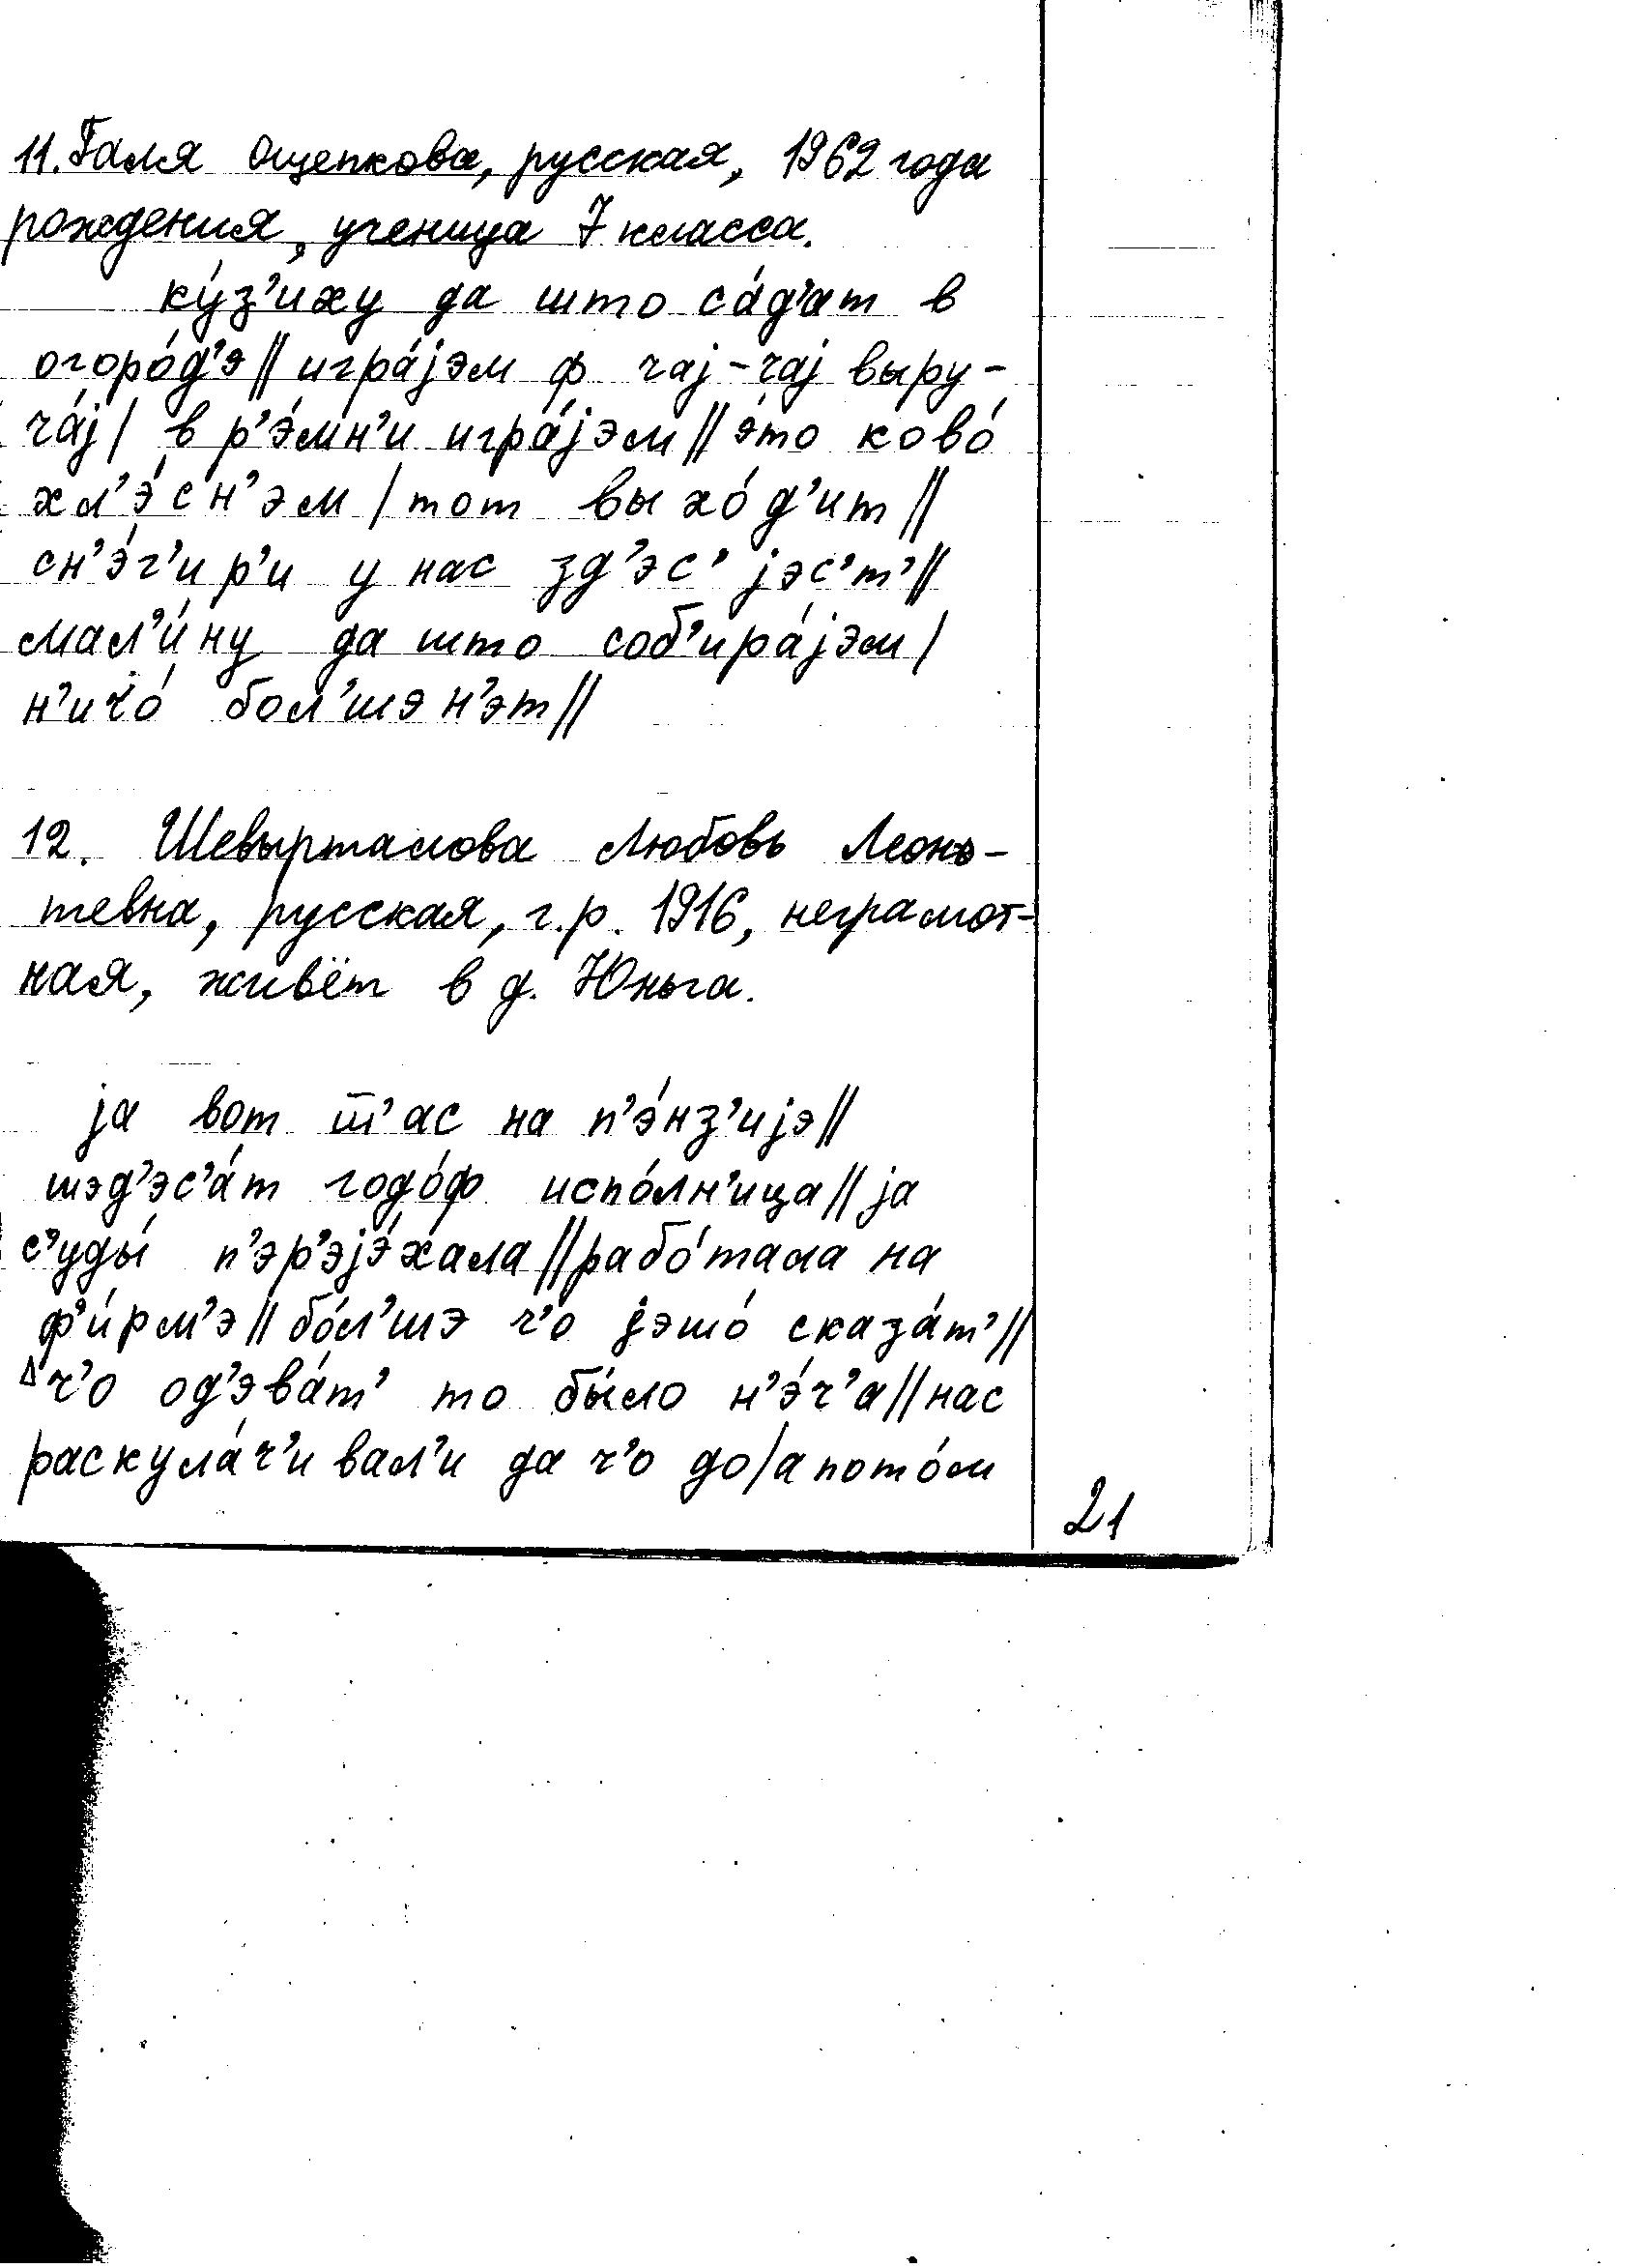 11. Галя Ощепкова, русская, 1962 года
рождения, ученица 7 класса.
ку́з’иху да што са́д’ат в
огоро́д’э || игра́јэм ф чај-чај выру-
ча́ј | в р’э́мн’и игра́јэм || э́то ково́
хл’э́сн’эм | тот выхо́д’ит ||
сн’э́г’ир’и у нас зд’эс’ јэс’т’ ||
мал’и́ну да што соб’ира́јэм |
н’ичо́ бол’шэ н’эт ||
12. Шевырталова Любовь Леонь-
тевна, русская, г.р. 1916, неграмот-
ная, живёт в д. Юньга.
ја вот т’ас на п’э́нз’ијэ ||
шэд’эс’а́т годо́ф испо́лн’ица || ја
с’уды́ п’эр’эјэ́хала || рабо́тала на
ф’и́рм’э || бо́л’шэ ч’о јэшо́ сказа́т’ ||
ч’о од’эва́т’ то бы́ло н’э́ч’а || нас
раскула́ч’ивал’и да ч’о до | а пото́м
21